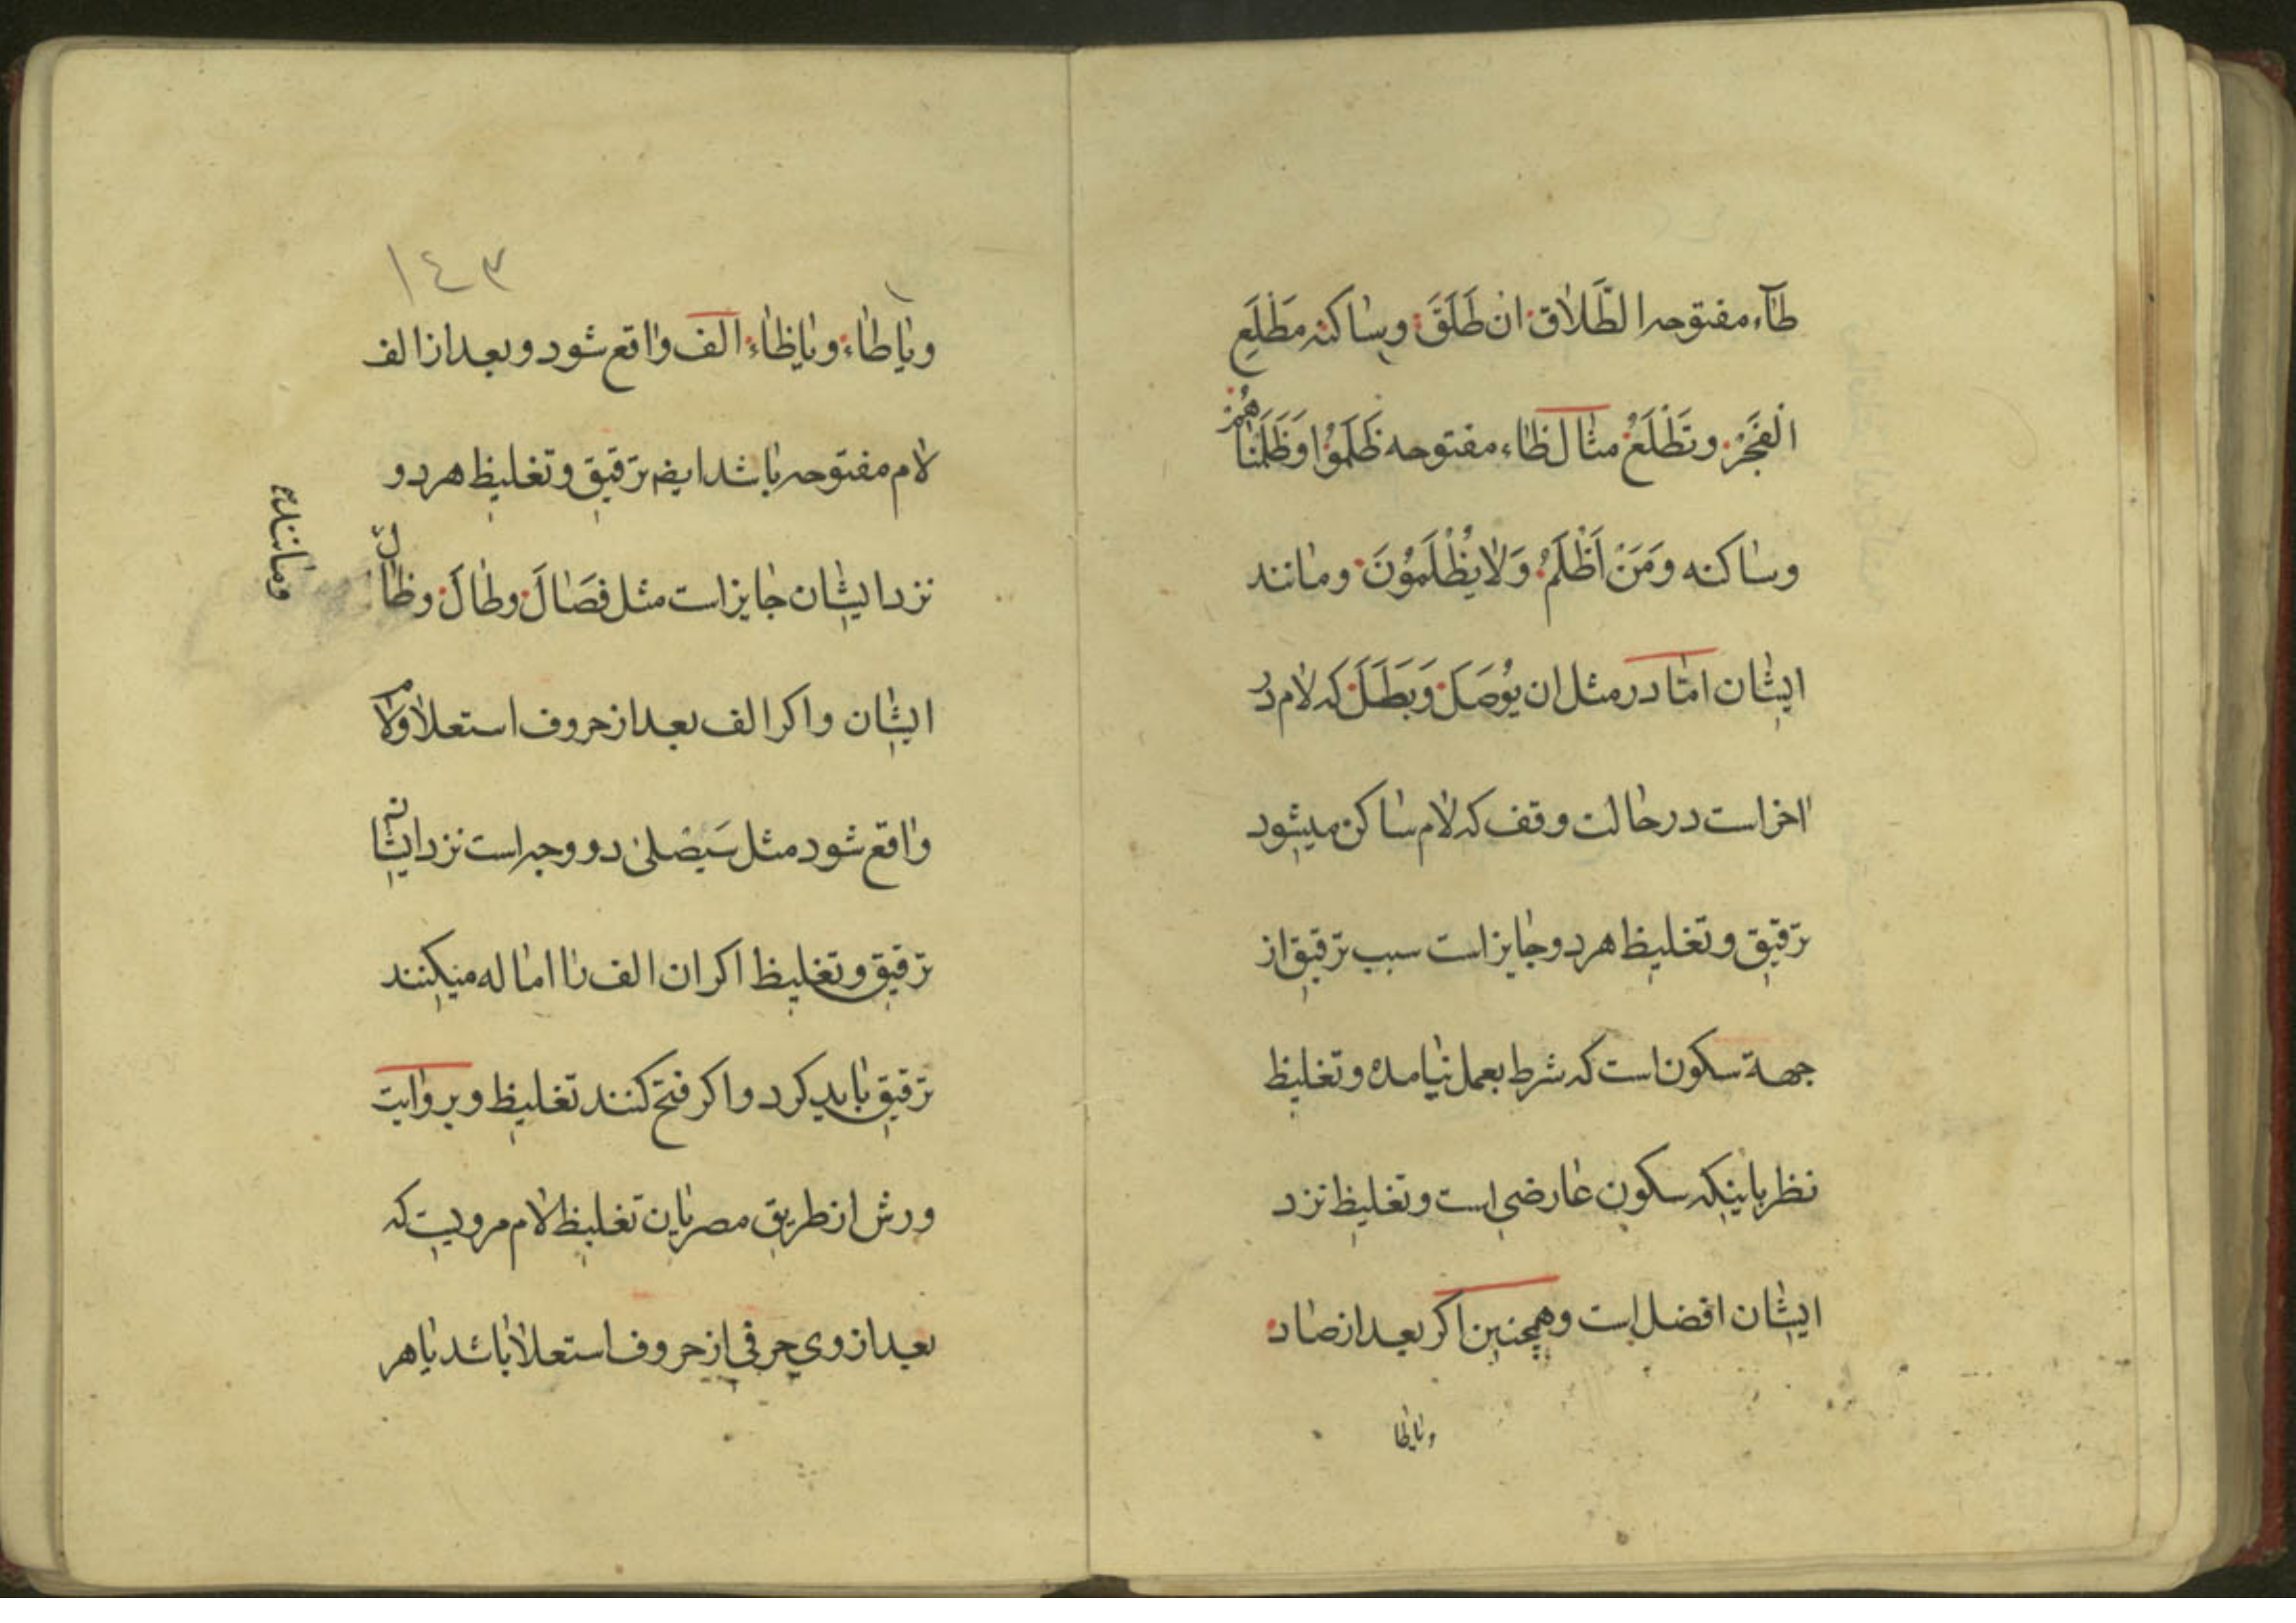 طآء مفتوحه الطَّلَاق ان طَلَقَ وساكنه مَطْلَعِ
الفَجْرِ وتَطْلَعُ مثال ظاء مفتوحه ظَلَمُوْا وَظَلَمْنَاهُمْ
وساكنه وَمَنْ اَظْلَمُ وَلَا يُظْلَمُوْنَ ومانند
ايشان امّا در مثل ان يُوْصَلَ وَبَطَلَ كه لام در
اخر است در حالت وقف كه لام ساكن ميشود
ترقيق وتغليظ هر دو جايز است سبب ترقيق از
جهة سكون است كه شرط بعمل نيامده وتغليظ
نظر باينكه سكون عارضى است وتغليظ نزد
ايشان افضل است وهمچنين اكر بعد از صاد
ويا طا
١٤٣
ويا طاء ويا ظاء الف واقع شود وبعد از الف
لام مفتوحه باشد ايضا ترقيق وتغليظ هر دو
نزد ايشان جايز است مثل فِصَالَ وطَالَ وظال
ومانند
ايشان واكر الف بعد از حروف استعلا ولام
واقع شود مثل سَيَصْلىٰ دو وجه است نزد ايشان
ترقيق وتغليظ اكر ان الف را اماله ميكنند
ترقيق بايد كرد واكر فتح كنند تغليظ وبروايت
ورش از طريق مصريان تغليظ لام مرويست كه
بعد از وى حرفى از حروف استعلا باشد يا هر